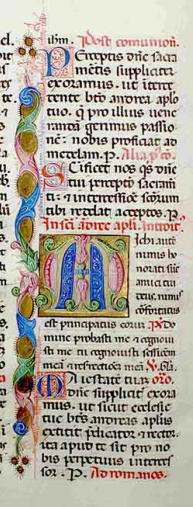 ihm. Postcomunion.
Perceptis dñe sacra
mētis suppliciter
exoramus. ut īterce
dente btō andrea aplo
tuo. q̄ pro illius vene
randa gerimus passio
nē: nobis proficiat ad
medelam. P. Alia p̄ cō.
tui percepto sacramē
ti: intercessiōe
bībi acceptos. P.
In scī andree apli. Introit.
Ichi autē
nimis ho
norati sūt
amici tui
deus. nimis
cōfortatus
est principatus eorum. Ps. Do
mine probasti me & cognoui
sti me tu cognouisti sessionē
meā & resurrectiōe meā. V. Gla.
Maiestatē tuā oro.
dñe suppliciť exora
mus. ut sicut ecclesie
tue btūs andreas aplus
extitit predicator & rector.
ita apud te sit pro no
bis perpetuus interces
sor. P. Ad romanos.